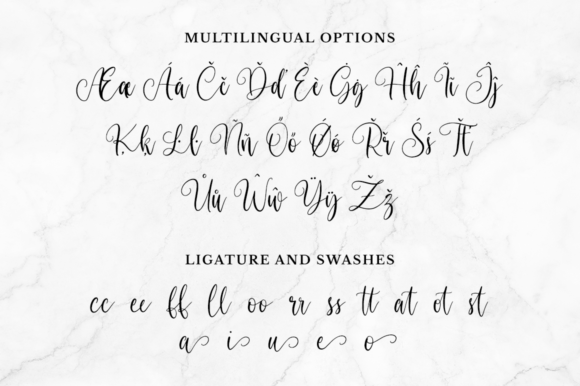 MULTILINGUAL OPTIONS
Ææ Áá Čč Ďď Èè Ġġ Ĥĥ Ĩĩ Ĵĵ
Ķķ Ŀŀ Ññ Őő Ǿǿ Řř Śś Ťť
Ůů Ŵŵ Ÿÿ Žž
LIGATURE AND SWASHES
cc ee ff ll oo rr ss tt at ot st
a i u e o